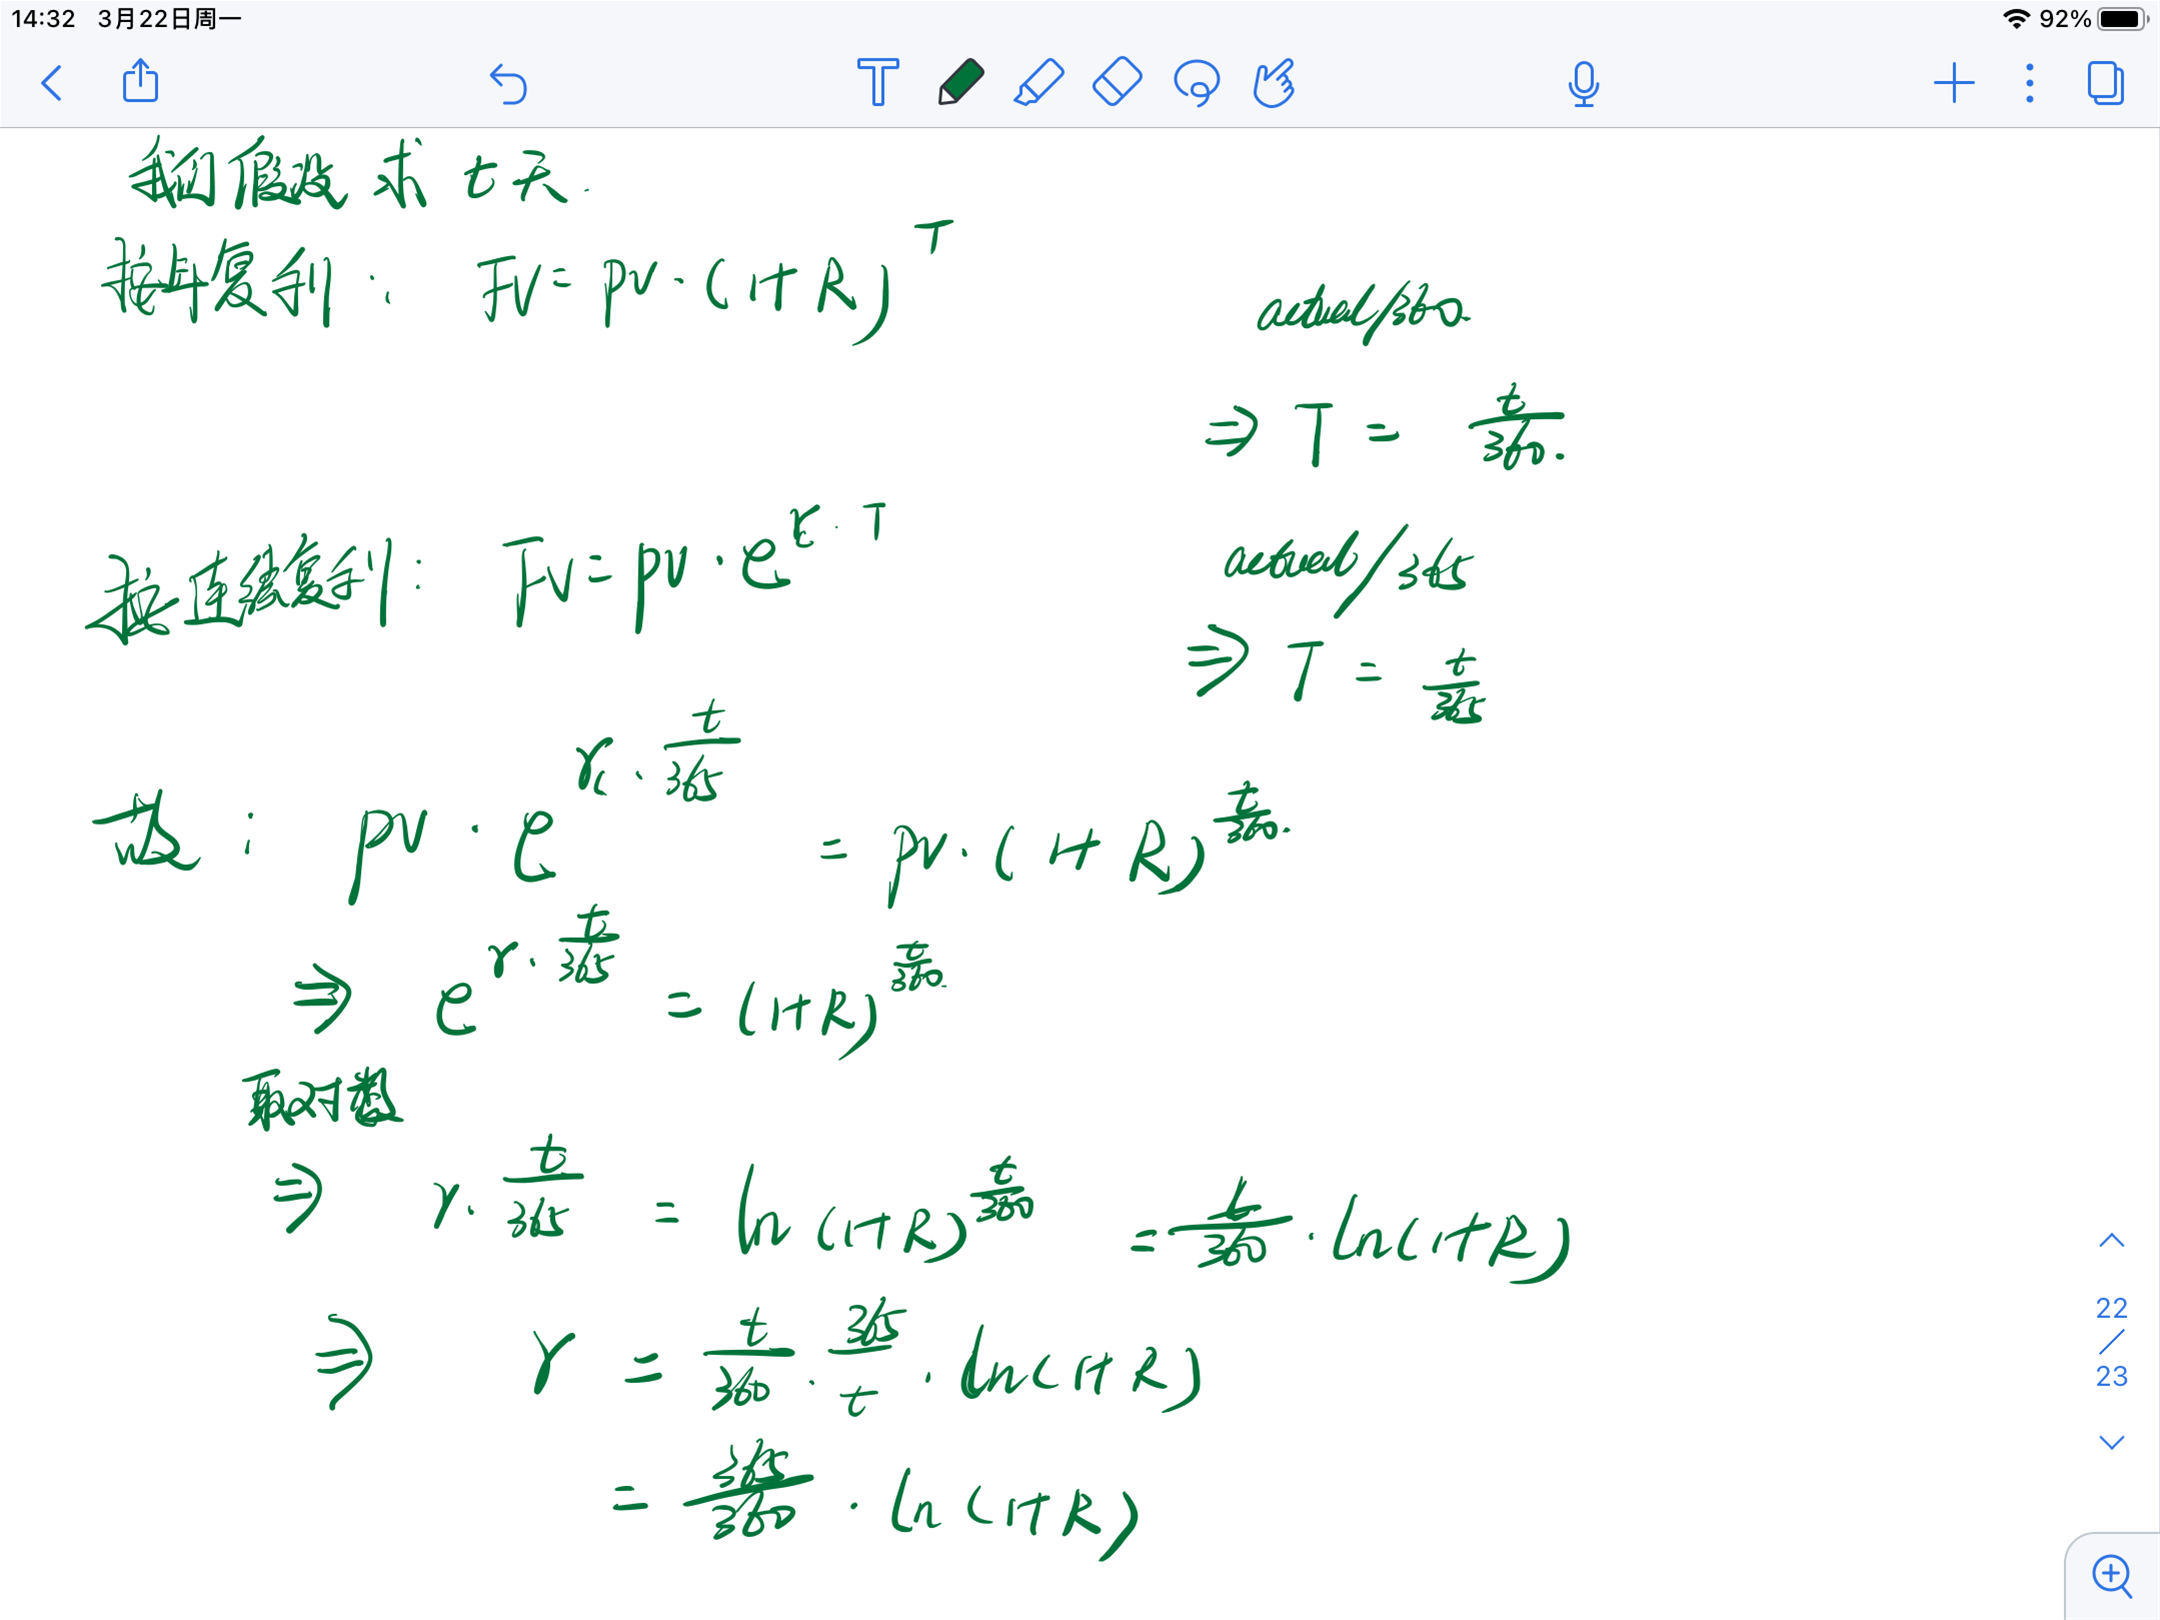 14:32 3月22日周一
92%
我们假设求 t天.
按年复利: FV = PV·(1+R)^T
actual/360.
⇒ T = t/360.
按连续复利: FV = PV·e^(rc·T)
actual/365
⇒ T = t/365
故: PV·e^(rc·t/365) = PV·(1+R)^(t/360).
⇒ e^(r·t/365) = (1+R)^(t/360).
取对数
⇒ r·t/365 = ln(1+R)^(t/360) = t/360·ln(1+R)
⇒ r = t/360·365/t·ln(1+R)
= 365/360·ln(1+R)
22
/
23